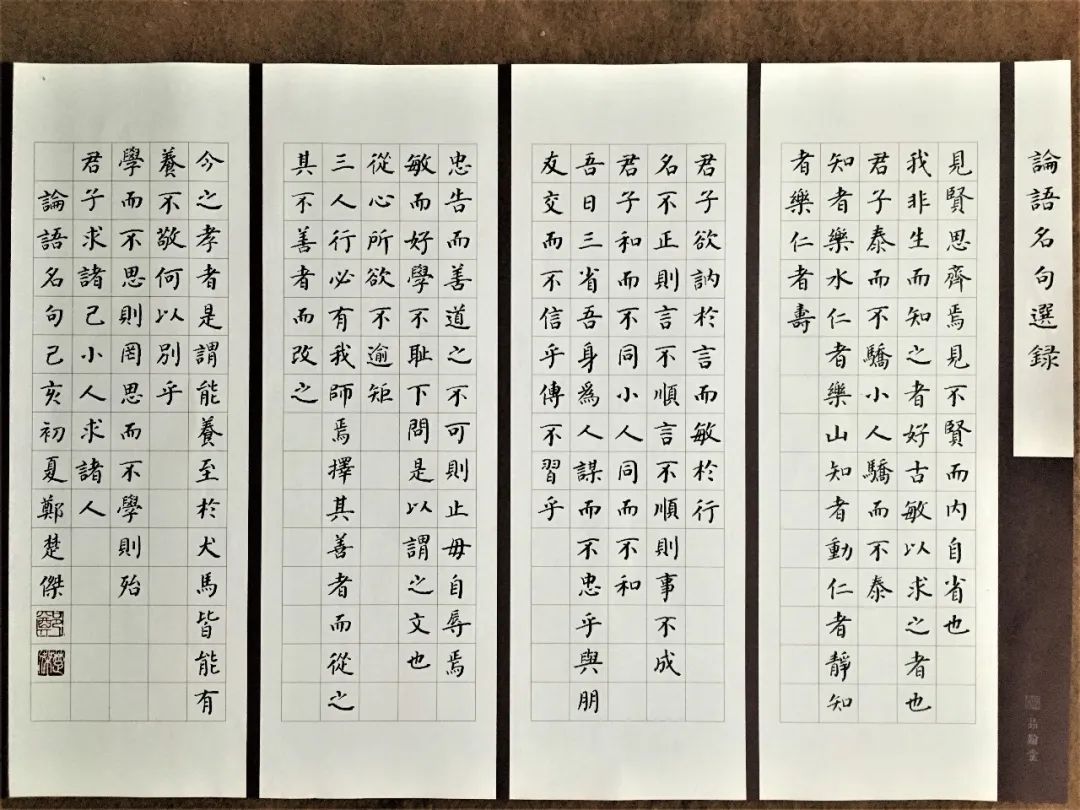 論語名句選録
見賢思齊焉見不賢而内自省也
我非生而知之者好古敏以求之者也
君子泰而不驕小人驕而不泰
知者樂水仁者樂山知者動仁者靜知
者樂仁者壽
君子欲訥於言而敏於行
名不正則言不順言不順則事不成
君子和而不同小人同而不和
吾日三省吾身為人謀而不忠乎與朋
友交而不信乎傳不習乎
忠告而善道之不可則止毋自辱焉
敏而好學不恥下問是以謂之文也
從心所欲不逾矩
三人行必有我師焉擇其善者而從之
其不善者而改之
今之孝者是謂能養至於犬馬皆能有
養不敬何以別乎
學而不思則罔思而不學則殆
君子求諸己小人求諸人
論語名句己亥初夏鄭楚傑